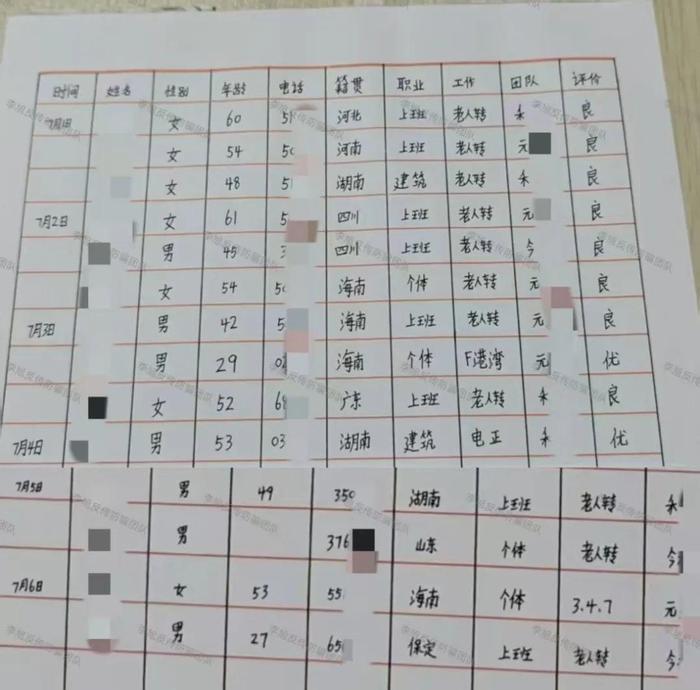 时间 姓名 性别 年龄 电话 籍贯 职业 工作 团队 评价
7月1日 女 60 河北 上班 老人转 永 良
女 54 河南 上班 老人转 元 良
女 48 湖南 建筑 老人转 永 良
7月2日 女 61 5 四川 上班 老人转 元 良
男 45 四川 上班 老人转 今 良
女 54 海南 个体 老人转 元 良
7月3日 男 42 5 海南 上班 老人转 元 良
男 29 海南 个体 F港湾 元 优
女 52 广东 上班 老人转 永 良
7月4日 男 53 03 湖南 建筑 电正 永 优
7月5日 男 49 350 湖南 上班 老人转 永
男 376 山东 个体 老人转 今
7月6日 女 53 55 海南 个体 3.4.7 元
男 27 65 保定 上班 老人转 今
李旭反传防骗团队